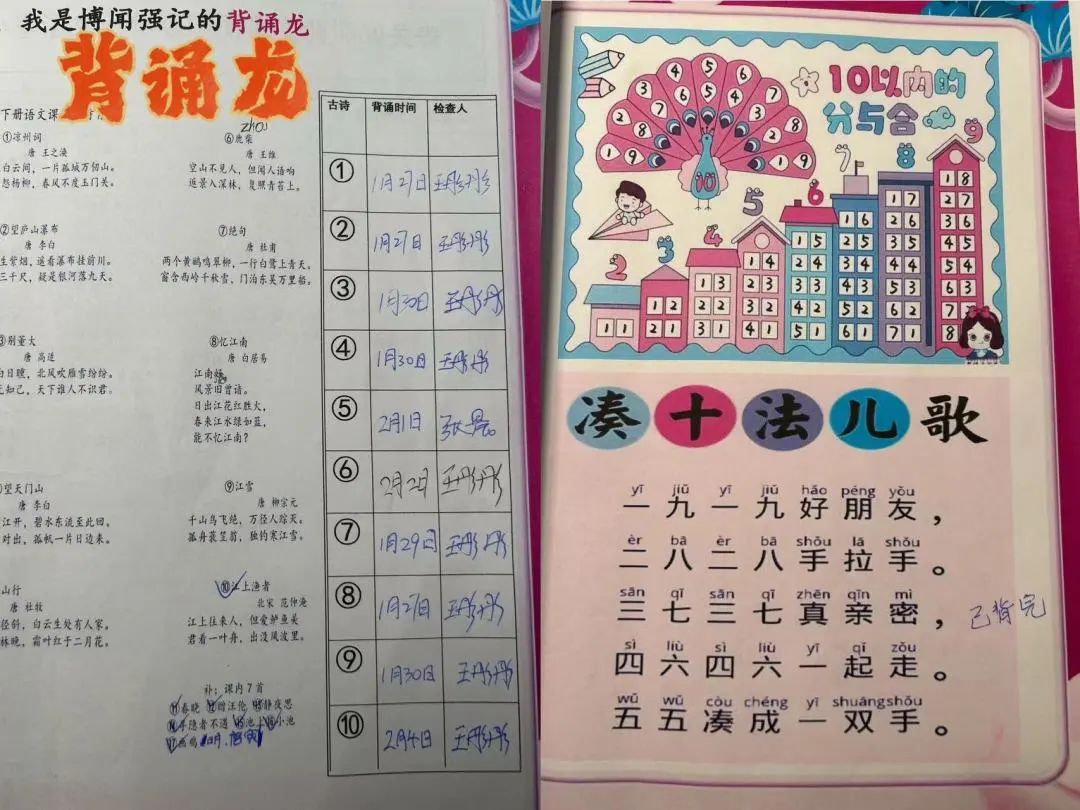 我是博闻强记的背诵龙
背诵龙
下册语文课
①凉州词
唐 王之涣
白云间，一片孤城万仞山。
怨杨柳，春风不度玉门关。
②望庐山瀑布
唐 李白
生紫烟，遥看瀑布挂前川。
三千尺，疑是银河落九天。
③别董大
唐 高适
白日曛，北风吹雁雪纷纷。
无知己，天下谁人不识君。
望天门山
唐 李白
江开，碧水东流至此回。
对出，孤帆一片日边来。
山行
唐 杜牧
径斜，白云生处有人家。
林晚，霜叶红于二月花。
zhài
⑥鹿柴
唐 王维
空山不见人，但闻人语响
返景入深林，复照青苔上。
⑦绝句
唐 杜甫
两个黄鹂鸣翠柳，一行白鹭上青天。
窗含西岭千秋雪，门泊东吴万里船。
⑧忆江南
唐 白居易
江南好
风景旧曾谙。
日出江花红胜火，
春来江水绿如蓝，
能不忆江南？
⑨江雪
唐 柳宗元
千山鸟飞绝，万径人踪灭。
孤舟蓑笠翁，独钓寒江雪。
⑩江上渔者
北宋 范仲淹
江上往来人，但爱鲈鱼美
君看一叶舟，出没风波里。
补：课内7首
⑪春晓 ⑫赠汪伦 ⑬静夜思
寻隐者不遇 池上 小池
画鸡
古诗 背诵时间 检查人
① 1月27日 王彤彤
② 1月27日 王彤彤
③ 1月30日 王彤彤
④ 1月30日 王彤彤
⑤ 2月1日
⑥ 2月2日 王彤彤
⑦ 1月29日 王彤彤
⑧ 1月27日 王彤彤
⑨ 1月30日 王彤彤
⑩ 2月4日 王彤彤
10以内的
分与合
1 2 3 4 5 6 7 8 9
9 8 7 6 5 4 3 2 1
10
2
11
3
12
21
4
13
22
31
5
14
23
32
41
6
15
24
33
42
51
7
16
25
34
43
52
61
8
17
26
35
44
53
62
71
9
18
27
36
45
54
63
72
8
凑十法儿歌
yī jiǔ yī jiǔ hǎo péng yǒu
一九一九好朋友，
èr bā èr bā shǒu lā shǒu
二八二八手拉手。
sān qī sān qī zhēn qīn mì
三七三七真亲密，
已背完
sì liù sì liù yī qǐ zǒu
四六四六一起走。
wǔ wǔ còu chéng yī shuāng shǒu
五五凑成一双手。